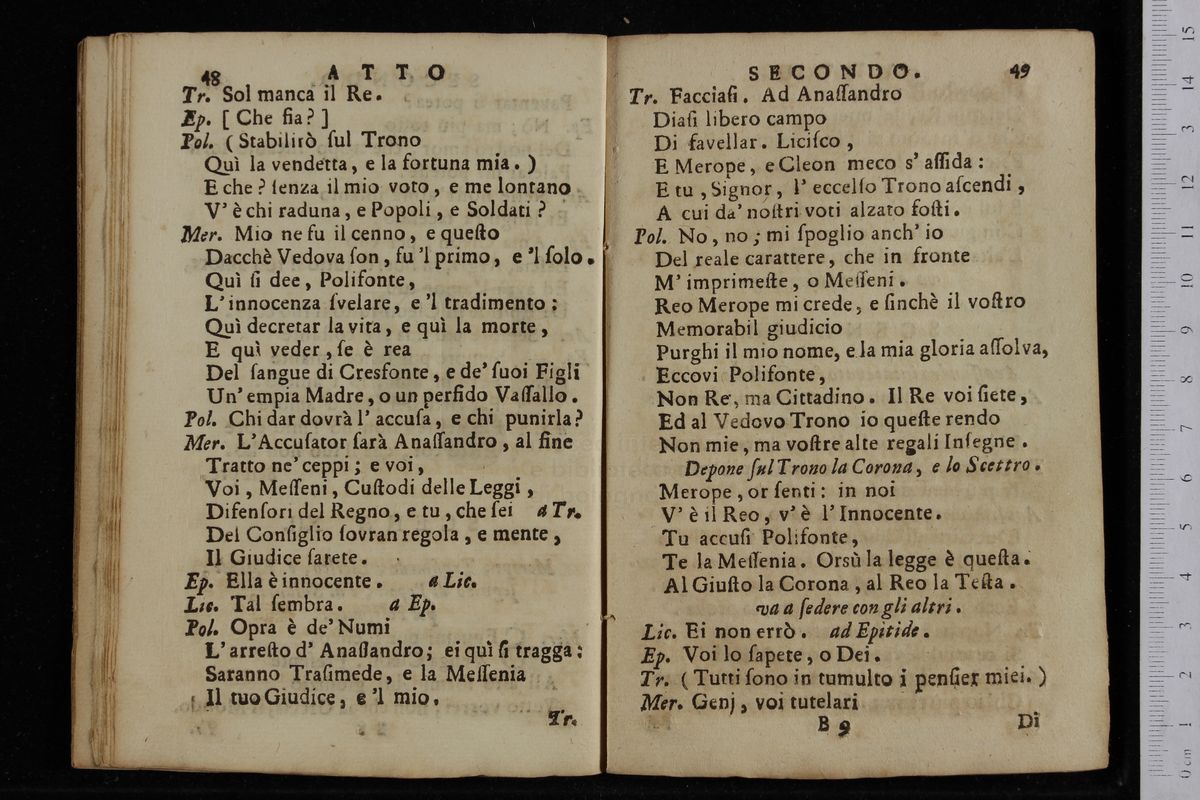 48 ATTO
Tr. Sol manca il Re.
Ep. [ Che fia? ]
Pol. ( Stabilirò ſul Trono
Quì la vendetta, e la fortuna mia. )
E che? ſenza il mio voto, e me lontano
V' è chi raduna, e Popoli, e Soldati?
Mer. Mio ne fu il cenno, e queſto
Dacchè Vedova ſon, fu 'l primo, e 'l ſolo.
Quì ſi dee, Polifonte,
L'innocenza ſvelare, e 'l tradimento;
Quì decretar la vita, e quì la morte,
E quì veder, ſe è rea
Del ſangue di Cresfonte, e de' ſuoi Figli
Un' empia Madre, o un perfido Vaſſallo.
Pol. Chi dar dovrà l' accuſa, e chi punirla?
Mer. L'Accuſator ſarà Anaſſandro, al fine
Tratto ne' ceppi; e voi,
Voi, Meſſeni, Cuſtodi delle Leggi,
Difenſori del Regno, e tu, che ſei a Tr.
Del Conſiglio ſovran regola, e mente,
Il Giudice ſarete.
Ep. Ella è innocente. a Lic.
Lic. Tal ſembra. a Ep.
Pol. Opra è de' Numi
L' arreſto d' Anaſſandro; ei quì ſi tragga:
Saranno Traſimede, e la Meſſenia
Il tuo Giudice, e 'l mio.
Tr.
SECONDO. 49
Tr. Facciaſi. Ad Anaſſandro
Diaſi libero campo
Di favellar. Liciſco,
E Merope, e Cleon meco s' aſſida:
E tu, Signor, l' eccelſo Trono aſcendi,
A cui da' noſtri voti alzato foſti.
Pol. No, no; mi ſpoglio anch' io
Del reale carattere, che in fronte
M' imprimeſte, o Meſſeni.
Reo Merope mi crede, e ſinchè il voſtro
Memorabil giudicio
Purghi il mio nome, e la mia gloria aſſolva,
Eccovi Polifonte,
Non Re, ma Cittadino. Il Re voi ſiete,
Ed al Vedovo Trono io queſte rendo
Non mie, ma voſtre alte regali Inſegne.
Depone ſul Trono la Corona, e lo Scettro.
Merope, or ſenti: in noi
V' è il Reo, v' è l' Innocente.
Tu accuſi Polifonte,
Te la Meſſenia. Orsù la legge è queſta.
Al Giuſto la Corona, al Reo la Teſta.
va a ſedere con gli altri.
Lic. Ei non errò. ad Epitide.
Ep. Voi lo ſapete, o Dei.
Tr. ( Tutti ſono in tumulto i penſier miei. )
Mer. Genj, voi tutelari
B 9 Di
0 cm 1 2 3 4 5 6 7 8 9 10 11 12 13 14 15